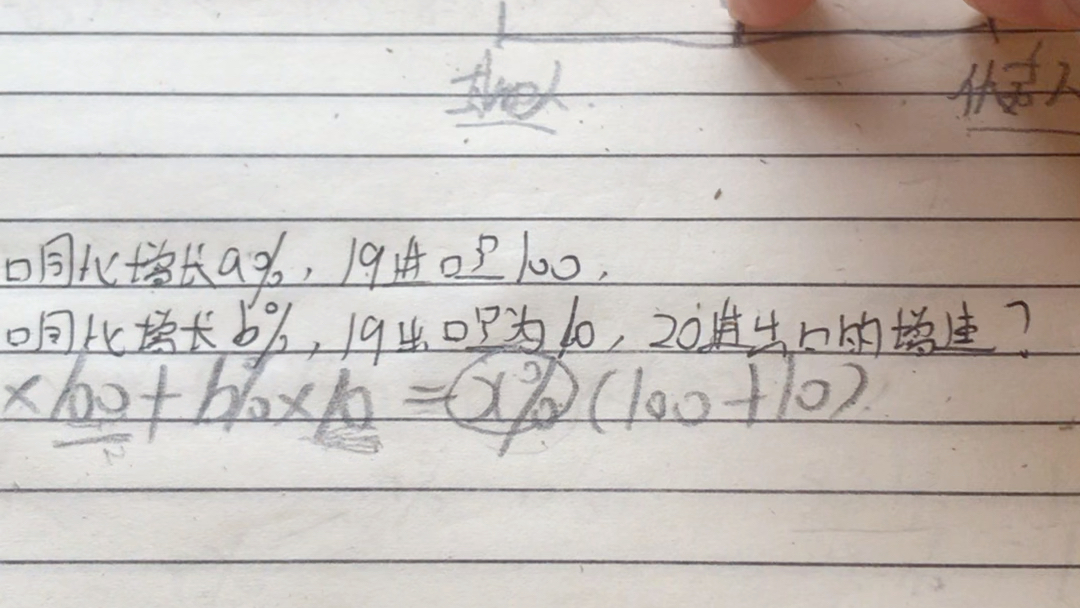 口同比增长a%，19进口是100，
口同比增长b%，19出口是为10，20进出口的增速？
×100+b%×10=x%(100+10)